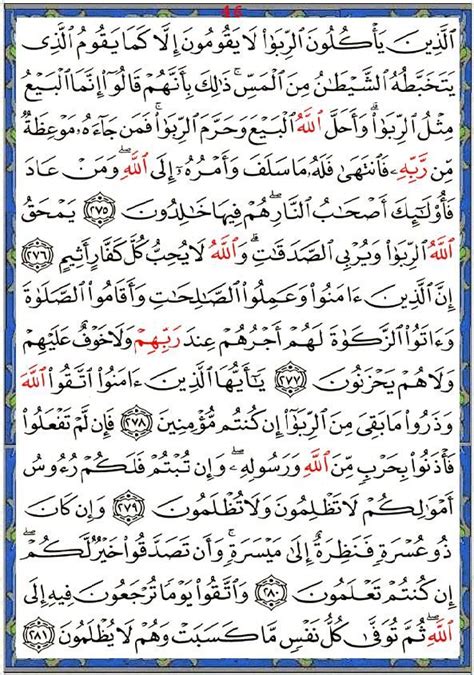 ٤٦
ٱلَّذِينَ يَأۡكُلُونَ ٱلرِّبَوٰاْ لَا يَقُومُونَ إِلَّا كَمَا يَقُومُ ٱلَّذِي
يَتَخَبَّطُهُ ٱلشَّيۡطَٰنُ مِنَ ٱلۡمَسِّۚ ذَٰلِكَ بِأَنَّهُمۡ قَالُوٓاْ إِنَّمَا ٱلۡبَيۡعُ
مِثۡلُ ٱلرِّبَوٰاْۗ وَأَحَلَّ ٱللَّهُ ٱلۡبَيۡعَ وَحَرَّمَ ٱلرِّبَوٰاْۚ فَمَن جَآءَهُۥ مَوۡعِظَةٞ
مِّن رَّبِّهِۦ فَٱنتَهَىٰ فَلَهُۥ مَا سَلَفَ وَأَمۡرُهُۥٓ إِلَى ٱللَّهِۖ وَمَنۡ عَادَ
فَأُوْلَٰٓئِكَ أَصۡحَٰبُ ٱلنَّارِۖ هُمۡ فِيهَا خَٰلِدُونَ ٢٧٥ يَمۡحَقُ
ٱللَّهُ ٱلرِّبَوٰاْ وَيُرۡبِي ٱلصَّدَقَٰتِۗ وَٱللَّهُ لَا يُحِبُّ كُلَّ كَفَّارٍ أَثِيمٍ ٢٧٦
إِنَّ ٱلَّذِينَ ءَامَنُواْ وَعَمِلُواْ ٱلصَّٰلِحَٰتِ وَأَقَامُواْ ٱلصَّلَوٰةَ
وَءَاتَوُاْ ٱلزَّكَوٰةَ لَهُمۡ أَجۡرُهُمۡ عِندَ رَبِّهِمۡ وَلَا خَوۡفٌ عَلَيۡهِمۡ
وَلَا هُمۡ يَحۡزَنُونَ ٢٧٧ يَٰٓأَيُّهَا ٱلَّذِينَ ءَامَنُواْ ٱتَّقُواْ ٱللَّهَ
وَذَرُواْ مَا بَقِيَ مِنَ ٱلرِّبَوٰٓاْ إِن كُنتُم مُّؤۡمِنِينَ ٢٧٨ فَإِن لَّمۡ تَفۡعَلُواْ
فَأۡذَنُواْ بِحَرۡبٖ مِّنَ ٱللَّهِ وَرَسُولِهِۦۖ وَإِن تُبۡتُمۡ فَلَكُمۡ رُءُوسُ
أَمۡوَٰلِكُمۡ لَا تَظۡلِمُونَ وَلَا تُظۡلَمُونَ ٢٧٩ وَإِن كَانَ
ذُو عُسۡرَةٖ فَنَظِرَةٌ إِلَىٰ مَيۡسَرَةٖۚ وَأَن تَصَدَّقُواْ خَيۡرٞ لَّكُمۡ
إِن كُنتُمۡ تَعۡلَمُونَ ٢٨٠ وَٱتَّقُواْ يَوۡمٗا تُرۡجَعُونَ فِيهِ إِلَى
ٱللَّهِۖ ثُمَّ تُوَفَّىٰ كُلُّ نَفۡسٖ مَّا كَسَبَتۡ وَهُمۡ لَا يُظۡلَمُونَ ٢٨١